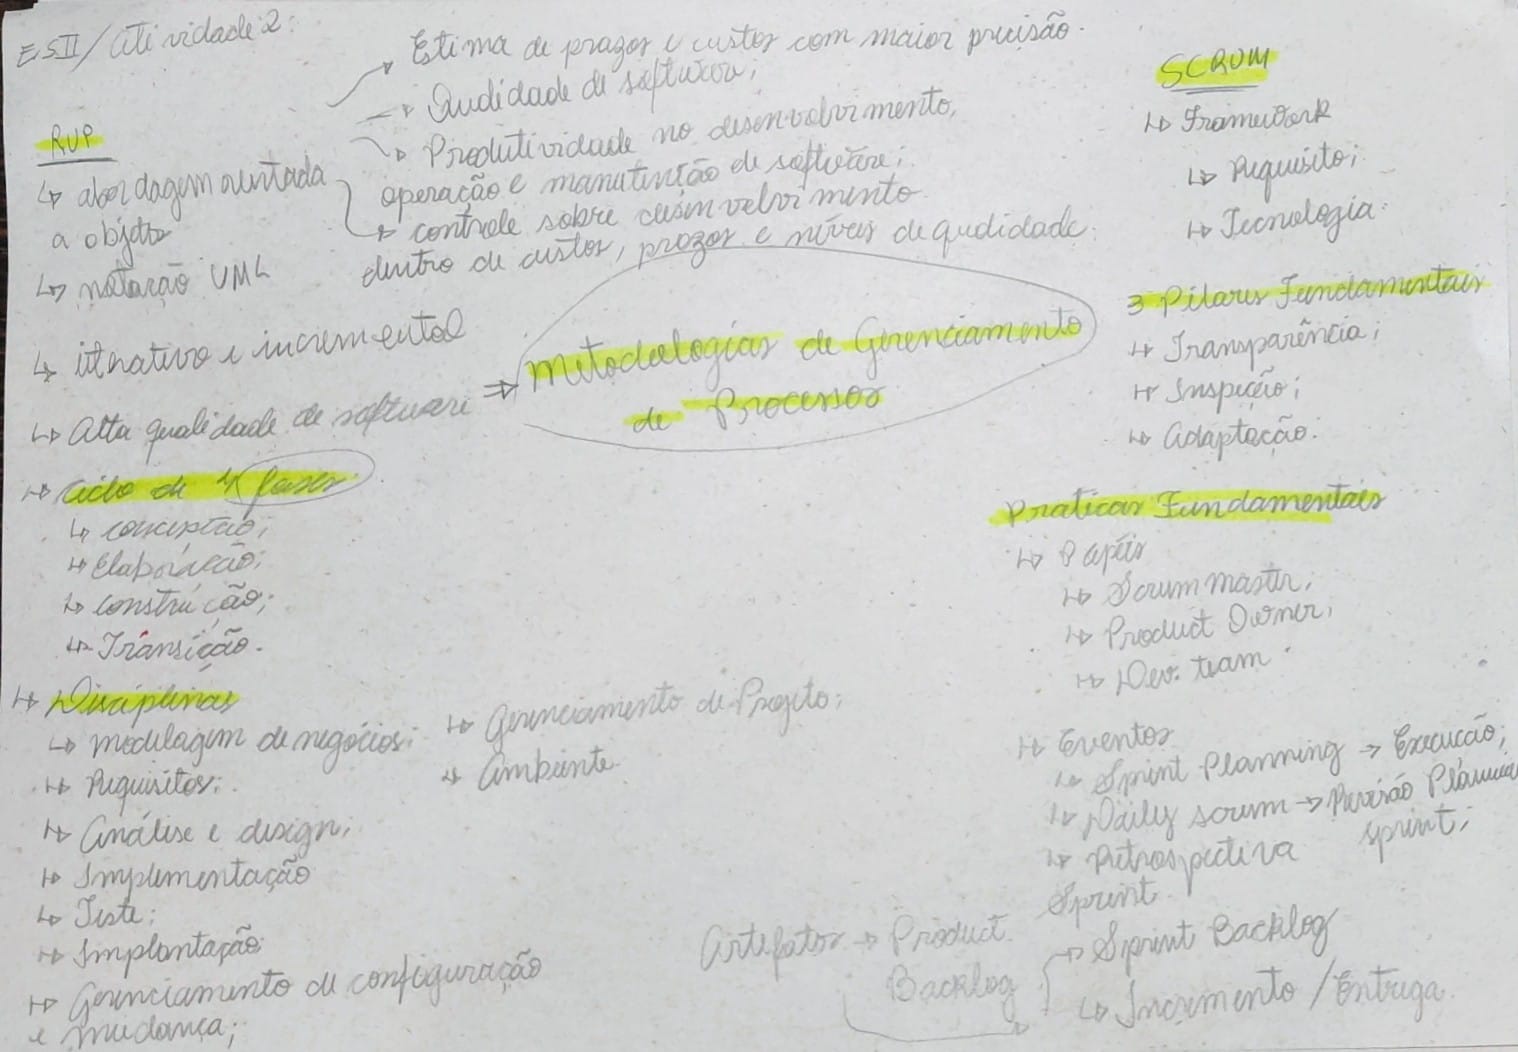 ESII/Atividade 2:
→ Estima de prazos e custos com maior precisão.
→ Qualidade de software;
→ Produtividade no desenvolvimento,
operação e manutenção de software;
→ controle sobre desenvolvimento
dentro de custos, prazos e níveis de qualidade.
RUP
↳ abordagem orientada
a objetos
↳ notação UML
↳ iterativo e incremental
↳ Alta qualidade de software
⇒ Metodologías de Gerenciamento
de Processos
↳ Ciclo de 4 fases
↳ concepção;
↳ Elaboração;
↳ construção;
↳ Transição.
↳ Disciplinas
↳ modelagem de negócios;
↳ Requisitos;
↳ Análise e design;
↳ Implementação
↳ Teste;
↳ Implantação
↳ Gerenciamento de configuração
e mudança;
↳ Gerenciamento de Projeto;
↳ Ambiente.
SCRUM
↳ Framework
↳ Requisito;
↳ Tecnologia.
3 Pilares Fundamentais
↳ Transparência;
↳ Inspeção;
↳ Adaptação.
Praticas Fundamentais
↳ Papéis
↳ Scrum master;
↳ Product Owner;
↳ Dev. team.
↳ Eventos
↳ Sprint Planning → Execução;
↳ Daily scrum → Revisão
sprint;
↳ Retrospectiva
Sprint.
Artefatos → Product
Backlog
→ Sprint Backlog
↳ Incremento / Entrega.